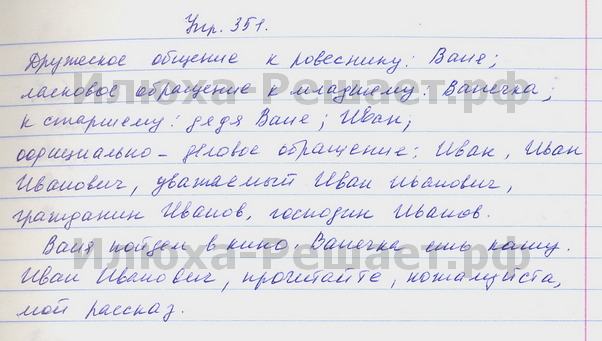 Упр. 351.
Дружеское общение к ровеснику: Ваня;
ласковое обращение к младшему: Ванечка;
к старшему: дядя Ваня; Иван;
официально-деловое обращение: Иван, Иван
Иванович, уважаемый Иван Иванович,
гражданин Иванов, господин Иванов.
Ваня пойдем в кино. Ванечка ешь кашу.
Иван Иванович, прочитайте, пожалуйста,
мой рассказ.
Илюха-Решает.рф
Илюха-Решает.рф